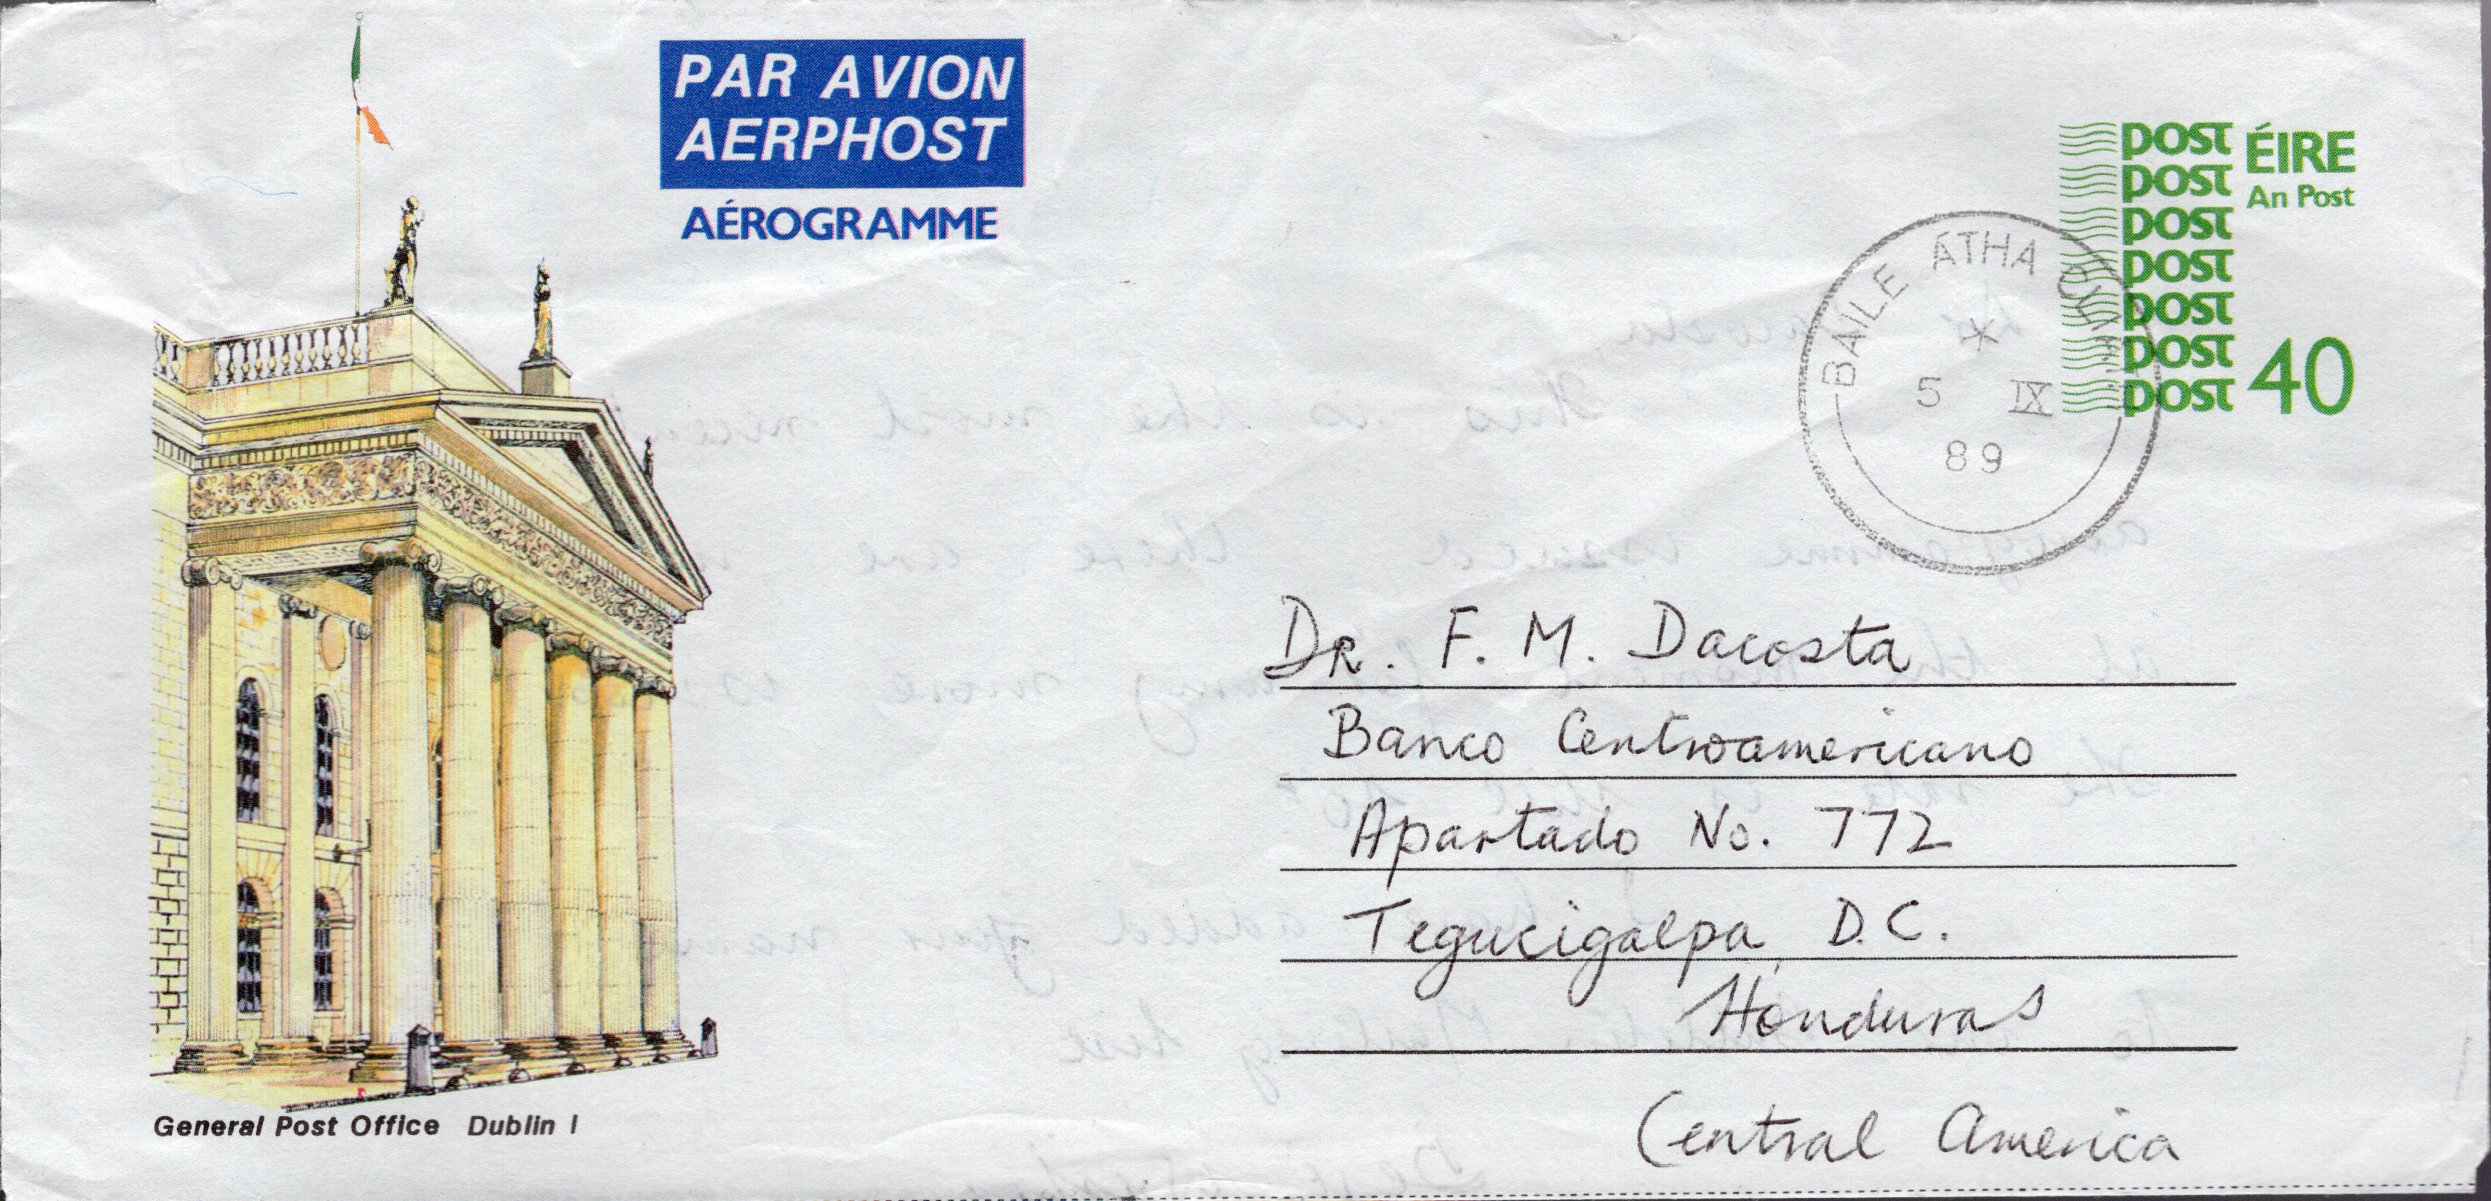 PAR AVION
AERPHOST
AÉROGRAMME
post ÉIRE
post An Post
post
post
post
post
post 40
BAILE ÁTHA CLIATH
*
5 IX
89
DR. F. M. Dacosta
Banco Centroamericano
Apartado No. 772
Tegucigalpa, D.C.
Honduras
Central America
General Post Office Dublin 1